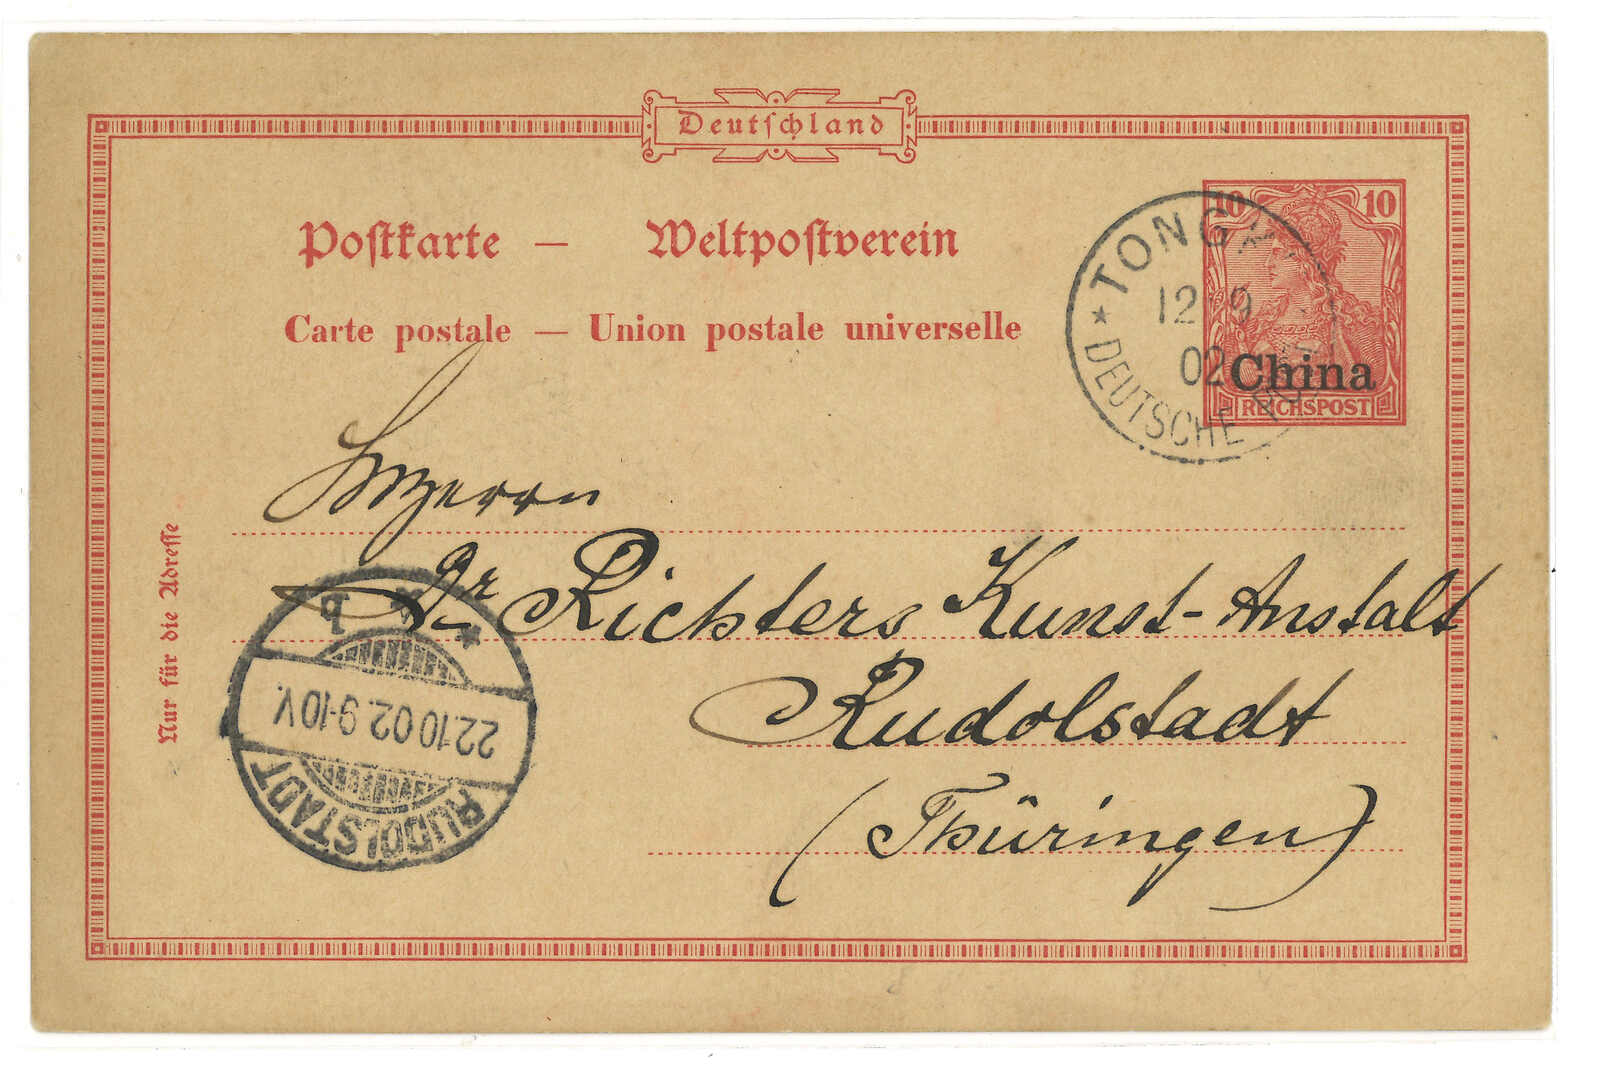 Deutschland
10 10
Postkarte – Weltpostverein
Carte postale – Union postale universelle
TONGK
12 9
02
DEUTSCHE POST
China
REICHSPOST
Nur für die Adresse
Herrn
Dr Richters Kunst-Anstalt
Rudolstadt
(Thüringen)
RUDOLSTADT
22.10 02. 9-10V.